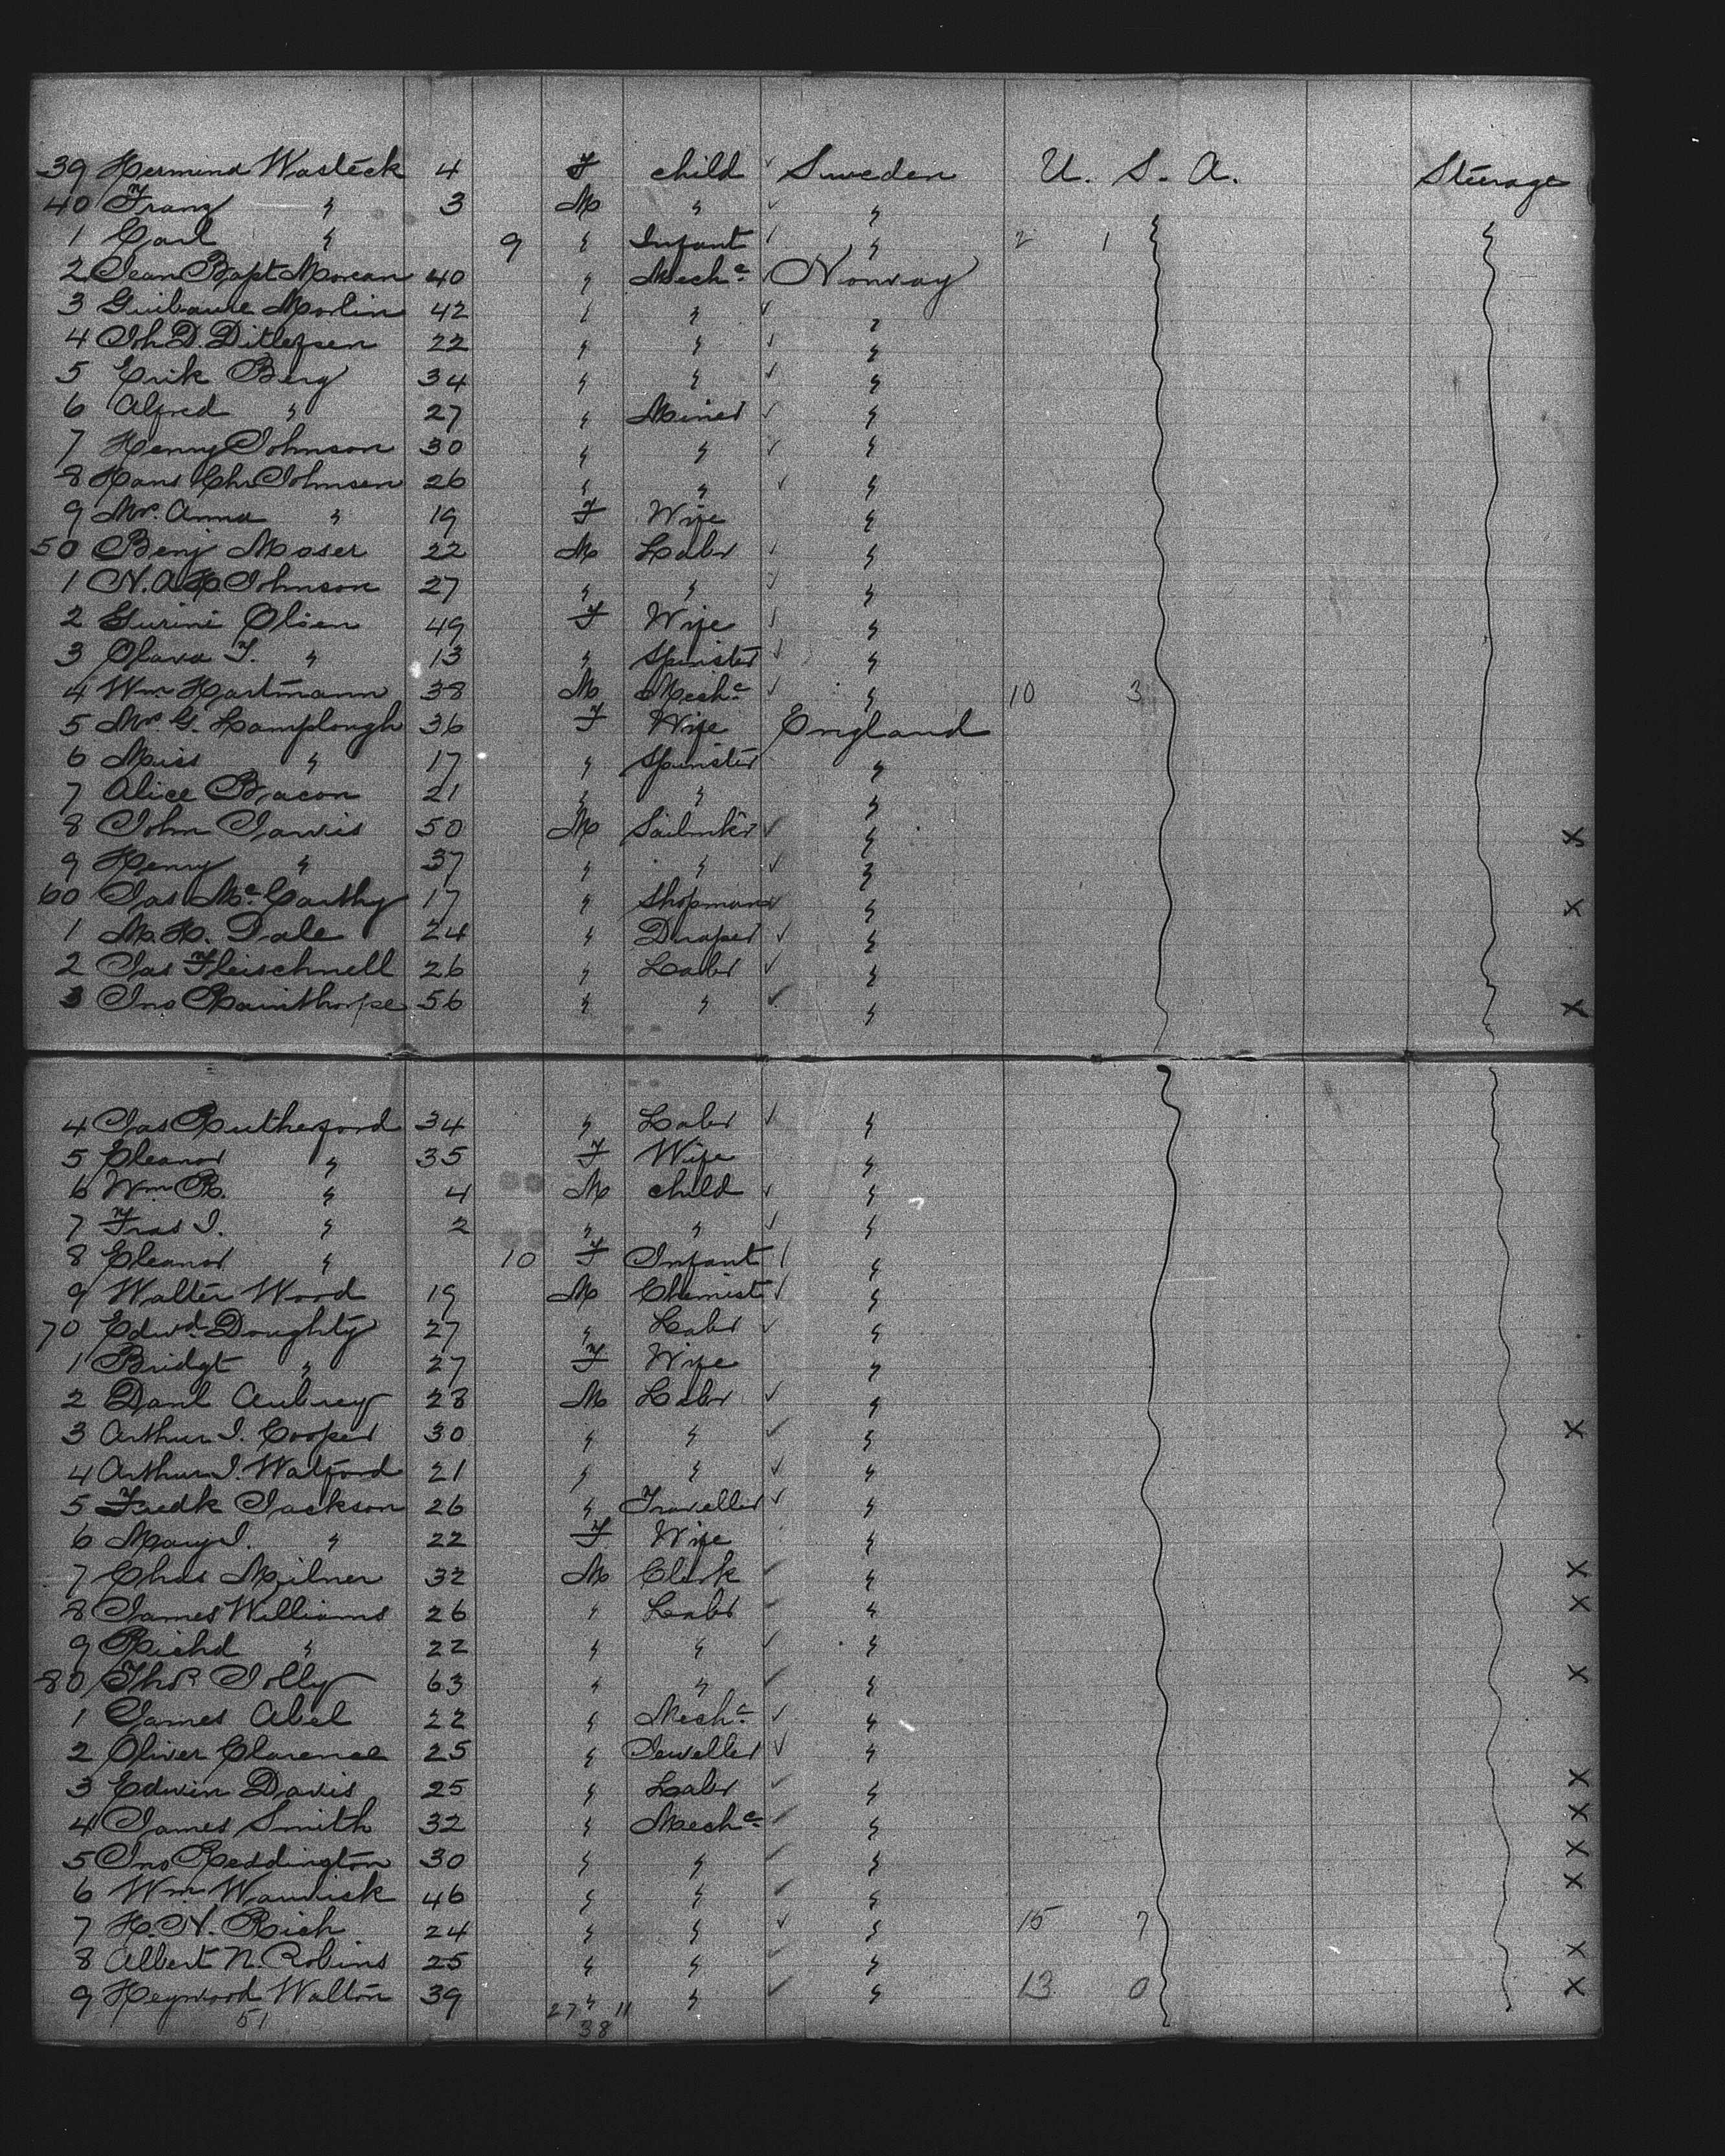 39 Hermina Wasteck 4 F child ✓ Sweden U. S. A. Steerage
40 Franz " 3 M " ✓ "
1 Carl " 9 " Infant / " 2 1
2 Jean Bapt Morean 40 " Mechc ✓ Norway
3 Guibaure Morlin 42 " " ✓ "
4 Joh D. Ditlefsen 22 " " ✓ "
5 Erik Berg 34 " " ✓ "
6 Alfred " 27 " Miner ✓ "
7 Henry Johnson 30 " " ✓ "
8 Hans Chr Johnsen 26 " " ✓ "
9 Mrs. Anna " 19 F Wife "
50 Benj Moser 22 M Labr ✓ "
1 N. A. H. Johnson 27 " " ✓ "
2 Gurini Olsen 49 F Wife ✓ "
3 Olava F. " 13 " Spinster ✓ "
4 Wm Hartmann 38 M Mechc ✓ " 10 3
5 Mrs G. Lamplough 36 F Wife England
6 Miss " 17 " Spinster "
7 Alice Bracon 21 " " "
8 John Jarvis 50 M Sailmkr ✓ " X
9 Henry " 37 " " ✓ "
60 Jas McCarthy 17 " Shopman ✓ " X
1 M. H. Dale 24 " Draper ✓ "
2 Jas Fleischnell 26 " Labr ✓ "
3 Jno Rainthorpe 56 " " ✓ " X
4 Jas Rutherford 34 " Labr ✓ "
5 Eleanor " 35 F Wife "
6 Wm R. " 4 M child ✓ "
7 Fras J. " 2 " " ✓ "
8 Eleanor " 10 F Infant / "
9 Walter Wood 19 M Chemist ✓ "
70 Edwd Doughty 27 " Labr ✓ "
1 Bridgt " 27 F Wife "
2 Danl Aubrey 28 M Labr ✓ "
3 Arthur J. Cooper 30 " " ✓ " X
4 Arthur J. Watford 21 " " ✓ "
5 Fredk Jackson 26 " Traveller ✓ "
6 Mary J. " 22 F Wife "
7 Chas Milner 32 M Clerk ✓ " X
8 James Williams 26 " Labr ✓ " X
9 Richd " 22 " " ✓ "
80 Thos Jolly 63 " " ✓ " X
1 James Abel 22 " Mechc ✓ "
2 Oliver Clarence 25 " Jeweller ✓ "
3 Edwin Davis 25 " Labr ✓ " X
4 James Smith 32 " Mechc ✓ " X
5 Jno Reddington 30 " " ✓ " X
6 Wm Warwick 46 " " ✓ " X
7 H. N. Rich 24 " " ✓ " 15 7
8 Albert N. Robins 25 " " ✓ " X
9 Heywood Walton 39 " " ✓ " 13 0 X
51 27 11
38